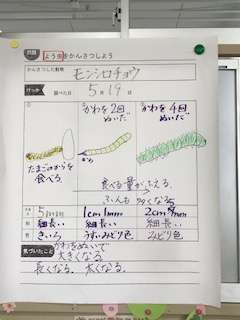 よう虫をかんさつしよう
かんさつした動物
モンシロチョウ
けっか
調べた日
5月19日
かわを2回
ぬいだ
かわを4回
ぬいだ
たまごのからを
食べる
食べる量がふえる
ふんも多くなる
1cm1mm
2cm
細長い
細長い
細長い
きいろ
うすいみどり色
みどり色
気づいたこと
かわをぬいで
大きくなる
長くなる。太くなる。